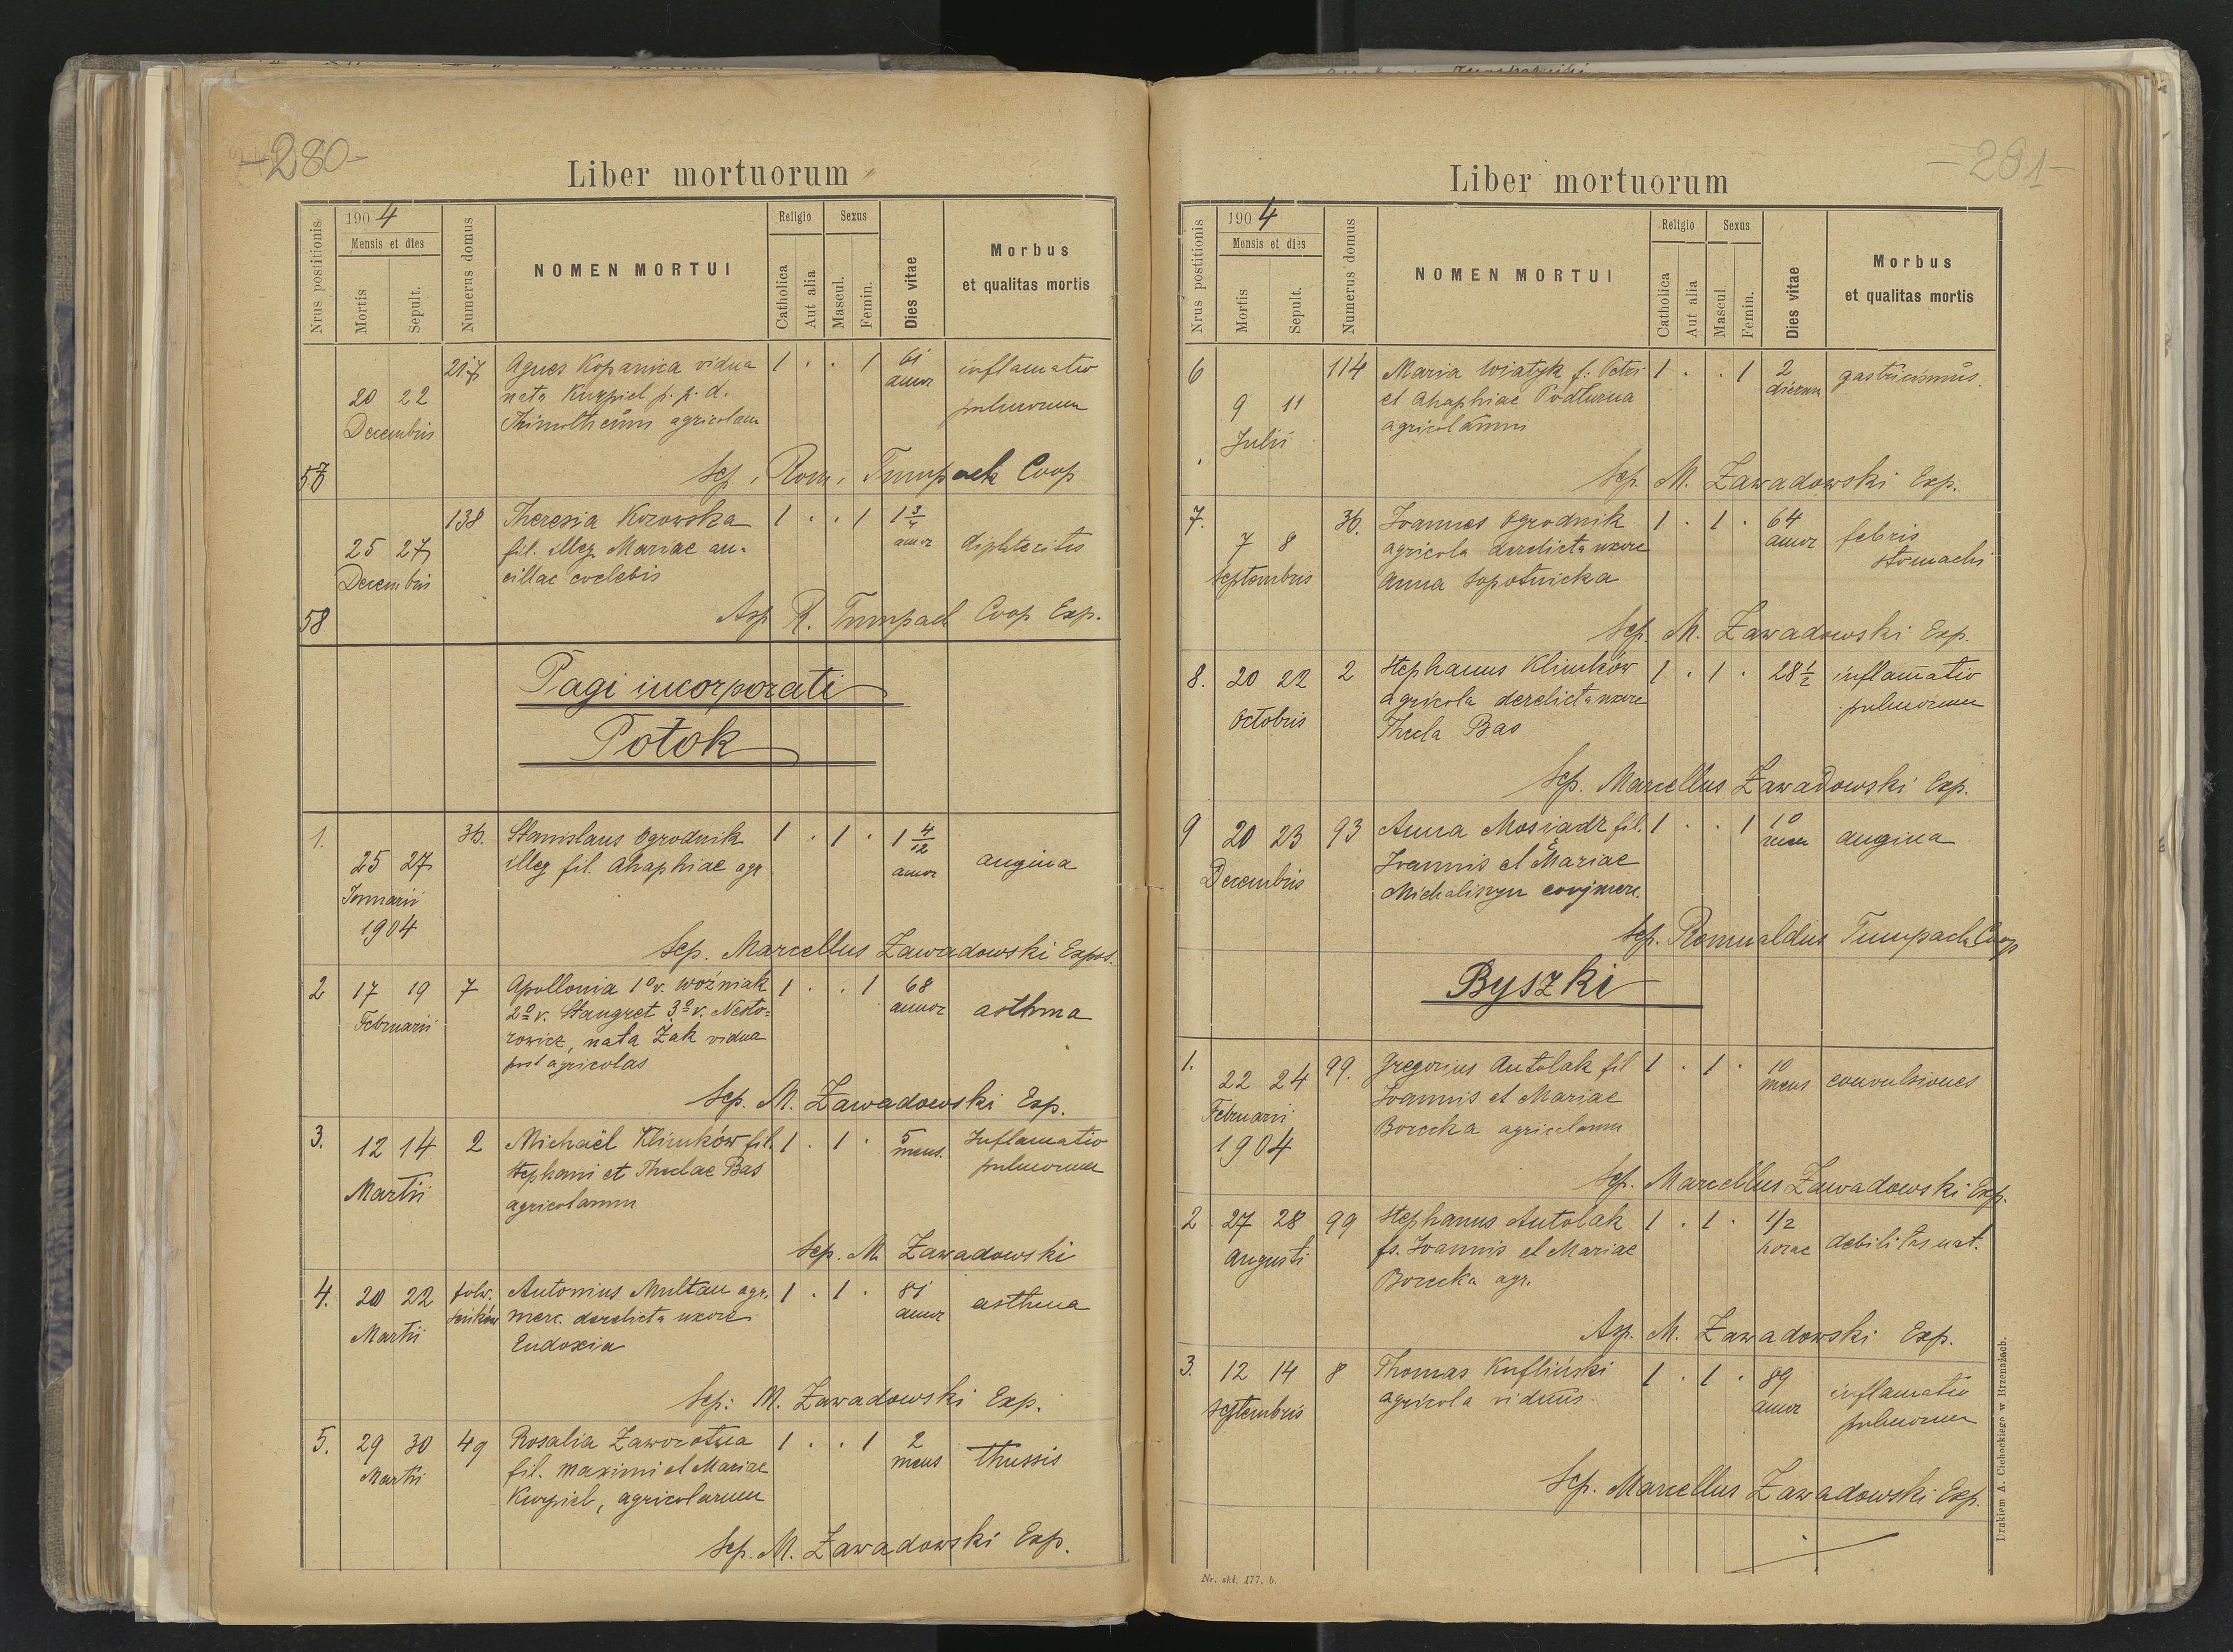 -280-
Liber mortuorum
Nrus postitionis
1904
Mensis et dies
Mortis
Sepult.
Numerus domus
NOMEN MORTUI
Religio
Catholica
Aut alia
Sexus
Mascul.
Femin.
Dies vitae
Morbus
et qualitas mortis
217 Agnes Kopanica vidua 1 . . 1 61 inflamatio
20 22 nata Kurpiel p. p. d. annor pulmonum
Decembris agricolam
57 Sep. Rom. Tumpach Coop
138 Theresia Kozowska 1 . . 1 1 3/4
25 27 fil. illeg Mariae an- annor diphteritis
Decembris cillae coelebis
58 Asp R. Tumpach Coop Exp.
Pagi incorporati
Potok
1. 36. Stanislaus Ogrodnik 1 . 1 . 1 4/12
25 27 illeg fil. Ahaphiae agr annor angina
Januarii
1904
Sep. Marcellus Zawadowski Expos.
2 17 19 7 Apollonia 1º v. Woźniak 1 . . 1 68
Februarii 2º v. Stangret 3º v. Nesto- annor asthma
rowicz, nata Żak vidua
post agricolas
Sep. M. Zawadowski Exp.
3. 12 14 2 Michaël Klimków fil. 1 . 1 . 5 Inflamatio
Martii Stephani et Theclae Bas mens. pulmonum
agricolarum
Sep. M. Zawadowski
4. 20 22 folw. Antonius Multan agr. 1 . 1 . 81
Martii merc. derelicta uxore annor asthma
Eudoxia
Sep: M. Zawadowski Exp.
5. 29 30 49 Rosalia Zaworotna 1 . . 1 2
Martii fil. Maximi et Mariae mens thussis
Kurpiel, agricolarum
Sep. M. Zawadowski Exp.
-281-
Liber mortuorum
Nrus postitionis
1904
Mensis et dies
Mortis
Sepult.
Numerus domus
NOMEN MORTUI
Religio
Catholica
Aut alia
Sexus
Mascul.
Femin.
Dies vitae
Morbus
et qualitas mortis
6 114 Maria Wiatyk f. Petri 1 . . 1 2 gastricismus.
9 11 et Ahaphiae Podturna dierum
Julii agricolarum
Sep. M. Zawadowski Exp.
7. 36. Joannes Ogrodnik 1 . 1 . 64
7 8 agricola derelicta uxore annor febris
Septembris Anna Sopotnicka stomachi
Sep. M. Zawadowski Exp.
8. 20 22 2 Stephanus Klimków 1 . 1 . 28 1/2 inflamatio
Octobris agricola derelicta uxore pulmonum
Thecla Bas
Sep. Marcellus Zawadowski Exp.
9 20 23 93 Anna Mosiądz fil. 1 . . 1 10
Decembris Joannis et Mariae mens angina
Michaliszyn
Sep. Romualdus Tumpach Coop
Byszki
1. 22 24 99. Gregorius Antolak fil 1 . 1 . 10
Februarii Joannis et Mariae mens convulsiones
1904 Borecka agricolarum
Sep. Marcellus Zawadowski Exp.
2 27 28 99 Stephanus Antolak 1 . 1 . 1/2
Augusti fs. Joannis et Mariae horae debilitas nat.
Borecka agr.
Asp. M. Zawadowski Exp.
3. 12 14 8 Thomas Kufliński 1 . 1 . 89 inflamatio
Septembris agricola viduus. annor pulmonum
Sep. Marcellus Zawadowski Exp.
Nr. skł. 177. b.
Drukiem A. Cichockiego w Brzeżanach.